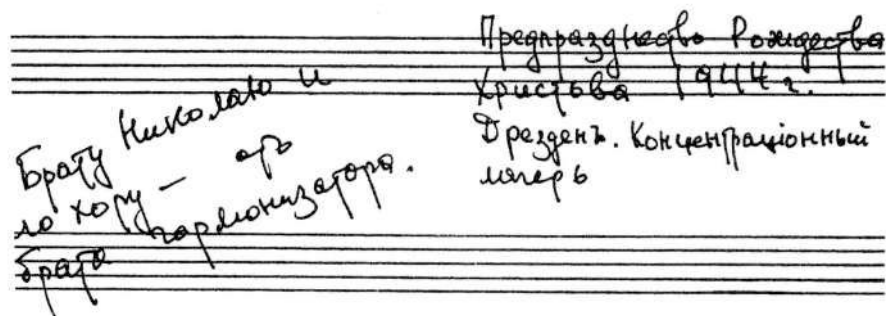 Предпразднество Рождества
Христова 1944 г.
Дрезденъ. Концентраціонный
лагерь
Брату Николаю и
по хору — отъ
брата гармонизатора.